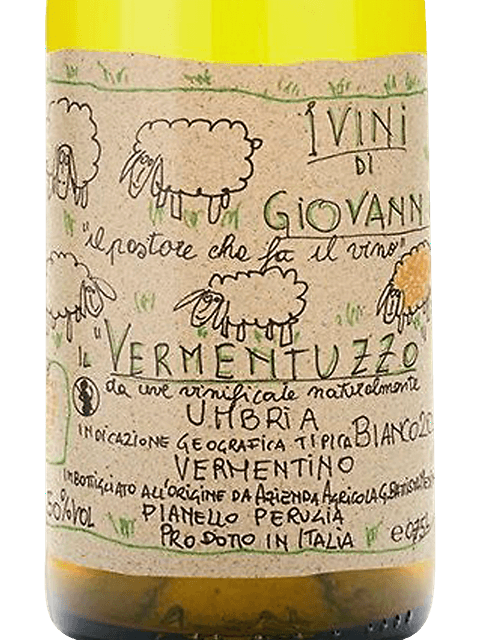 I VINI
DI
GIOVANN
"il pastore che fa il vino"
IL "VERMENTUZZO"
da uve vinificate naturalmente
UMBRIA
INDICAZIONE GEOGRAFICA TIPICA BIANCO 20
VERMENTINO
IMBOTTIGLIATO ALL'ORIGINE DA AZIENDA AGRICOLA G.
50%VOL PIANELLO PERUGIA
PRODOTTO IN ITALIA e 0,75L